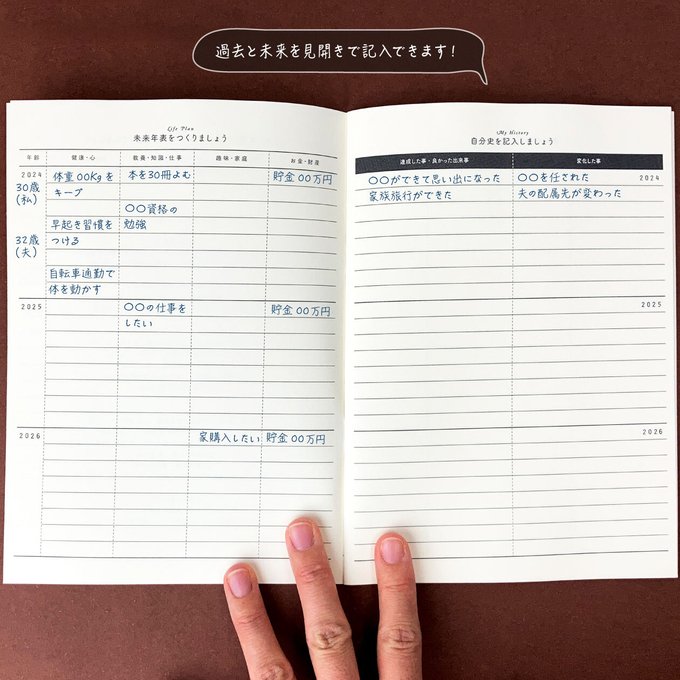 過去と未来を見開きで記入できます！
Life Plan
未来年表をつくりましょう
年齢 健康・心 教養・知識・仕事 趣味・家庭 お金・財産
2024 体重〇〇Kgを 本を30冊よむ 貯金〇〇万円
30歳 キープ
(私)
〇〇資格の
早起き習慣を 勉強
32歳 つける
(夫)
自転車通勤で
体を動かす
2025 〇〇の仕事を 貯金〇〇万円
したい
2026 家購入したい 貯金〇〇万円
My History
自分史を記入しましょう
達成した事・良かった出来事 変化した事
〇〇ができて思い出になった 〇〇を任された 2024
家族旅行ができた 夫の配属先が変わった
2025
2026